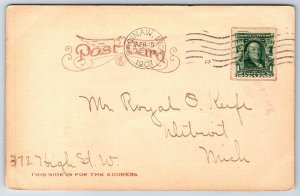 Post Card
SAGINAW, MICH.
APR 5
1907
1
Mr Royal O. Keefe
Detroit
Mich
372 High St. W.
THIS SIDE IS FOR THE ADDRESS.